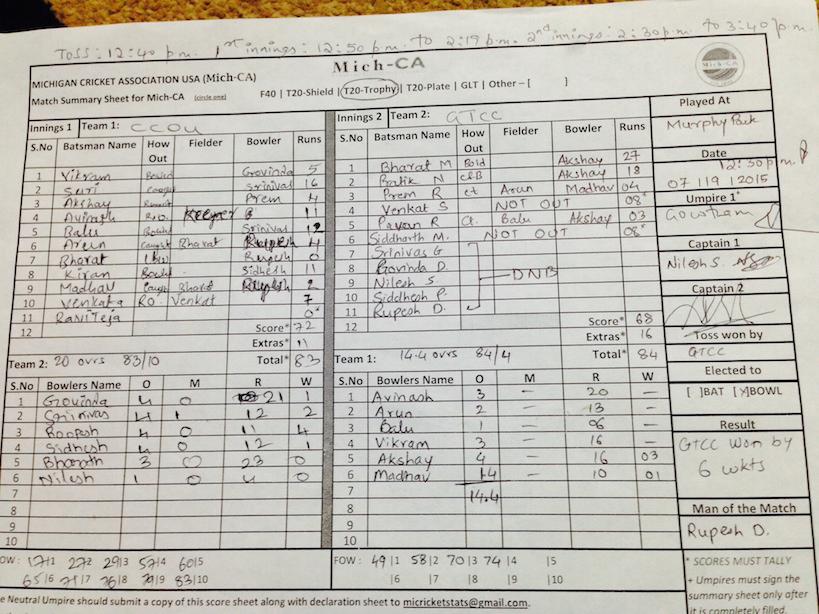 Toss: 12:40 p.m. 1st innings: 12:50 p.m. to 2:19 p.m. 2nd innings: 2:30 p.m. to 3:40 p.m.
Mich-CA
Mich-CA
MICHIGAN CRICKET ASSOCIATION USA (Mich-CA)
Match Summary Sheet for Mich-CA (circle one) F40 | T20-Shield | T20-Trophy | T20-Plate | GLT | Other – [ ]
Innings 1 Team 1: CCOU
S.No Batsman Name How Out Fielder Bowler Runs
1 Vikram Bowled Govinda 5
2 Suri Caught Srinivas 16
3 Akshay Prem 4
4 Avinash R.O. Keeper 11
5 Balu Bowld Srinivas 12
6 Arun Caught Bharat Rupesh 4
7 Bharat Rupesh 0
8 Kiran Bowld - Sidhesh 11
9 Madhav Caugh Bharat Rupesh 2
10 Venkata RO. Venkat 7
11 RaviTeja 0*
12
Score* 72
Extras* 11
Team 2: 20 ovrs 83/10 Total* 83
S.No Bowlers Name O M R W
1 Govinda 4 0 21 1
2 Srinivas 4 1 12 2
3 Roopesh 4 0 11 4
4 Sidhesh 4 0 12 1
5 Bharath 3 0 23 0
6 Nilesh 1 0 4 0
7
8
9
10
FOW: 17/1 27/2 29/3 57/4 60/5
65/6 71/7 76/8 79/9 83/10
Innings 2 Team 2: GTCC
S.No Batsman Name How Out Fielder Bowler Runs
1 Bharat M Bold Akshay 27
2 Pratik N c&B Akshay 18
3 Prem R ct Arun Madhav 04
4 Venkat S NOT OUT 08*
5 Pavan R Ct. Balu Akshay 03
6 Siddharth M. NOT OUT 08*
7 Srinivas G
8 Govinda D. DNB
9 Nilesh S.
10 Siddhesh P.
11 Rupesh D.
12
Score* 68
Extras* 16
Team 1: 14.4 ovrs 84/4 Total* 84
S.No Bowlers Name O M R W
1 Avinash 3 – 20 –
2 Arun 2 – 13 –
3 Balu 1 – 06 –
4 Vikram 3 – 16 –
5 Akshay 4 – 16 03
6 Madhav 1.4 – 10 01
7 14.4
8
9
10
FOW: 49/1 58/2 70/3 74/4 /5
/6 /7 /8 /9 /10
Played At
Murphy Park
Date
12:30 p.m.
07/19/2015
Umpire 1*
Goutham
Captain 1
Nilesh S.
Captain 2
Toss won by
GTCC
Elected to
[ ]BAT [X]BOWL
Result
GTCC Won by
6 wkts
Man of the Match
Rupesh D.
* SCORES MUST TALLY
+ Umpires must sign the
summary sheet only after
it is completely filled.
e Neutral Umpire should submit a copy of this score sheet along with declaration sheet to micricketstats@gmail.com.